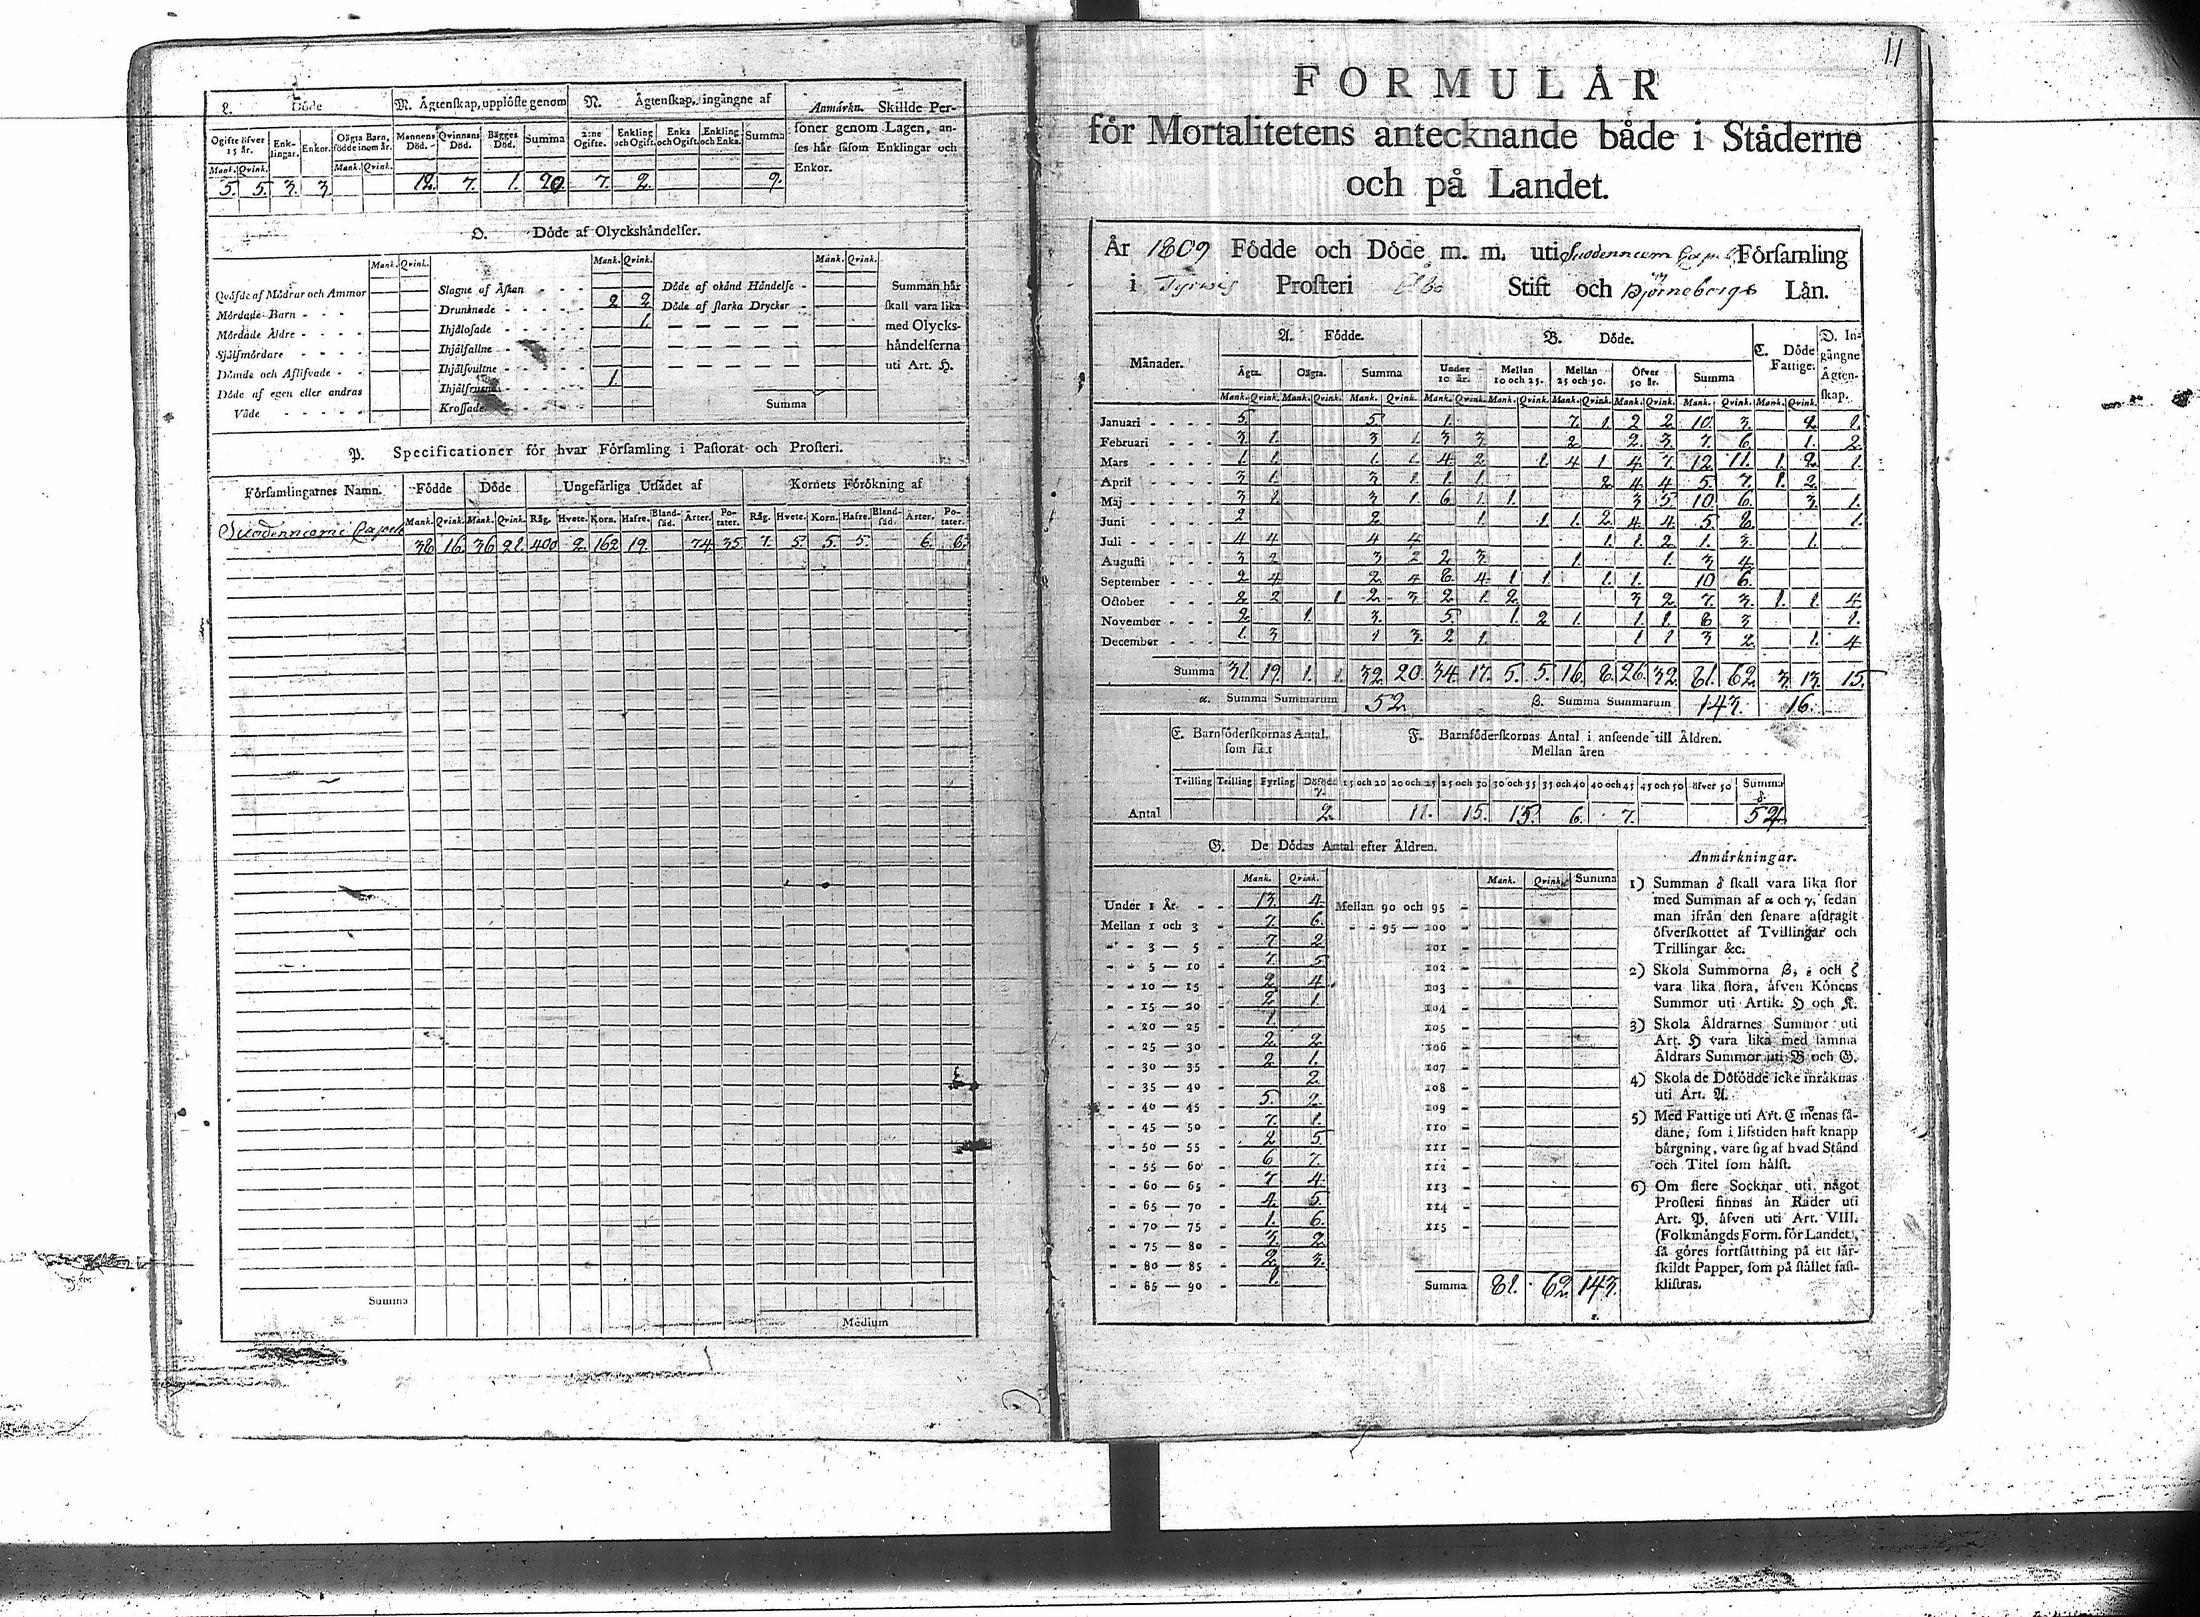 11
L. Döde
M. Ägtenskap, upplöste genom
N. Ägtenskap, ingångne af
Anmärkn. Skillde Per-
soner genom Lagen, an-
ses här såsom Enklingar och
Enkor.
Ogifte öfver 15 år. Enk-lingar. Enkor. Oägta Barn, födde inom år. Mannens Död. Qvinnans Död. Bägges Död. Summa 2:ne Ogifte. Enkling och Ogift. Enka och Ogift. Enkling och Enka. Summa
Mank. Qvink. Mank. Qvink.
5. 5. 3. 3. 12. 7. 1. 20 7. 2. 9.
O. Döde af Olyckshändelser.
Mank. Qvink. Mank. Qvink. Mank. Qvink.
Qväfde af Mödrar och Ammor
Mördade Barn
Mördade Äldre
Självmördare
Dömde och Aflifvade
Döde af egen eller andras
Våde
Slagne af Åskan
Drunknade 2 2
Ihjälosade 1.
Ihjälfallne
Ihjälsvultne
Ihjälfrusne 1.
Krossade
Döde af okänd Händelse
Döde af starka Drycker
Summa
Summan här
skall vara lika
med Olycks-
händelserna
uti Art. H.
P. Specificationer för hvar Församling i Pastorat och Prosteri.
Församlingarnes Namn. Födde Döde Ungefärliga Utsädet af Kornets Förökning af
Mank. Qvink. Mank. Qvink. Råg. Hvete. Korn. Hafre. Bland-säd. Ärter. Po-tater. Råg. Hvete. Korn. Hafre. Bland-säd. Ärter. Po-tater.
38 16. 36 21. 400 2. 162 19. 74 35 7. 5. 5. 5. 6. 6.
Summa
Medium
FORMULÄR
för Mortalitetens antecknande både i Städerne
och på Landet.
År 1809 Födde och Döde m. m. uti Församling
i Prosteri Åbo Stift och Björneborgs Län.
Månader. A. Födde. B. Döde. C. Döde Fattige. D. In-gångne Ägten-skap.
Ägta. Oägta. Summa Under 10 år. Mellan 10 och 25. Mellan 25 och 50. Öfver 50 år. Summa
Mank. Qvink. Mank. Qvink. Mank. Qvink. Mank. Qvink. Mank. Qvink. Mank. Qvink. Mank. Qvink. Mank. Qvink. Mank. Qvink.
Januari 5. 5 1. 7. 1. 2 2 10. 3. 2. 1.
Februari 3. 1. 3 1 3 3 2 2. 3. 7. 6. 1. 2
Mars 1. 1. 1. 1. 4 2 1. 4 1 4 7. 12 11. 1. 2. 1.
April 3. 1. 3 1 1. 1. 2 4 4 5. 7. 1. 2.
Maj 3. 1 3 1 6. 1. 1. 3 5 10. 6. 3. 1.
Juni 2 2. 1. 1 1. 2. 4 4 5 8. 1.
Juli 4 4 4 4 1. 1. 2 1. 3. 1.
Augusti 3 2 3 2 2 3. 1. 1. 3 4
September 2 4 2. 4 8. 4. 1 1. 1. 1. 10 6.
October 2 2 1. 2. 3. 2 1. 2. 3 2 7. 3. 1. 1. 4
November 2 1. 3. 5. 1. 2 1. 1. 1. 8 3 1.
December 1. 3 1 3. 2 1. 1 1 3 2 1. 4
Summa 31. 19. 1. 1. 32. 20 34. 17. 5. 5. 16. 8. 26. 32. 81. 62. 3. 13. 15.
α. Summa Summarum 52. β. Summa Summarum 143. 16.
E. Barnföderskornas Antal, som fått
F. Barnföderskornas Antal i anseende till Åldren.
Mellan åren
Tvilling Trilling Fyrling Dödfödde γ. 15 och 20 20 och 25 25 och 30 30 och 35 35 och 40 40 och 45 45 och 50 öfver 50 Summa δ
Antal 2. 11. 15. 15. 6. 7. 54.
G. De Dödas Antal efter Åldren.
Mank. Qvink. Mank. Qvink. Summa
Under 1 År 13. 4. Mellan 90 och 95
Mellan 1 och 3 7. 6. 95 — 100
3 — 5 7 2 101
5 — 10 7. 5 102
10 — 15 2 4 103
15 — 20 2 1. 104
20 — 25 1. 105
25 — 30 2. 2 106
30 — 35 2 1. 107
35 — 40 2. 108
40 — 45 5. 2. 109
45 — 50 7. 1. 110
50 — 55 2 5. 111
55 — 60 6 7. 112
60 — 65 7 4. 113
65 — 70 4. 5. 114
70 — 75 1. 6. 115
75 — 80 3. 2.
80 — 85 2. 3.
85 — 90 1. Summa 81. 62 143.
Anmärkningar.
1) Summan δ skall vara lika stor
med Summan af α och γ, sedan
man ifrån den senare afdragit
öfverskottet af Tvillingar och
Trillingar &c.
2) Skola Summorna β, ε och ζ
vara lika stora, äfven Könens
Summor uti Artik. H och K.
3) Skola Åldrarnes Summor uti
Art. H vara lika med samma
Åldrars Summor uti B och G.
4) Skola de Dödfödde icke inräknas
uti Art. A.
5) Med Fattige uti Art. C menas så-
dane, som i lifstiden haft knapp
bärgning, vare sig af hvad Stånd
och Titel som hälst.
6) Om flere Socknar uti något
Prosteri finnas än Rader uti
Art. P, äfven uti Art. VIII.
(Folkmängds Form. för Landet),
så göres fortsättning på ett sär-
skildt Papper, som på stället fast-
klistras.